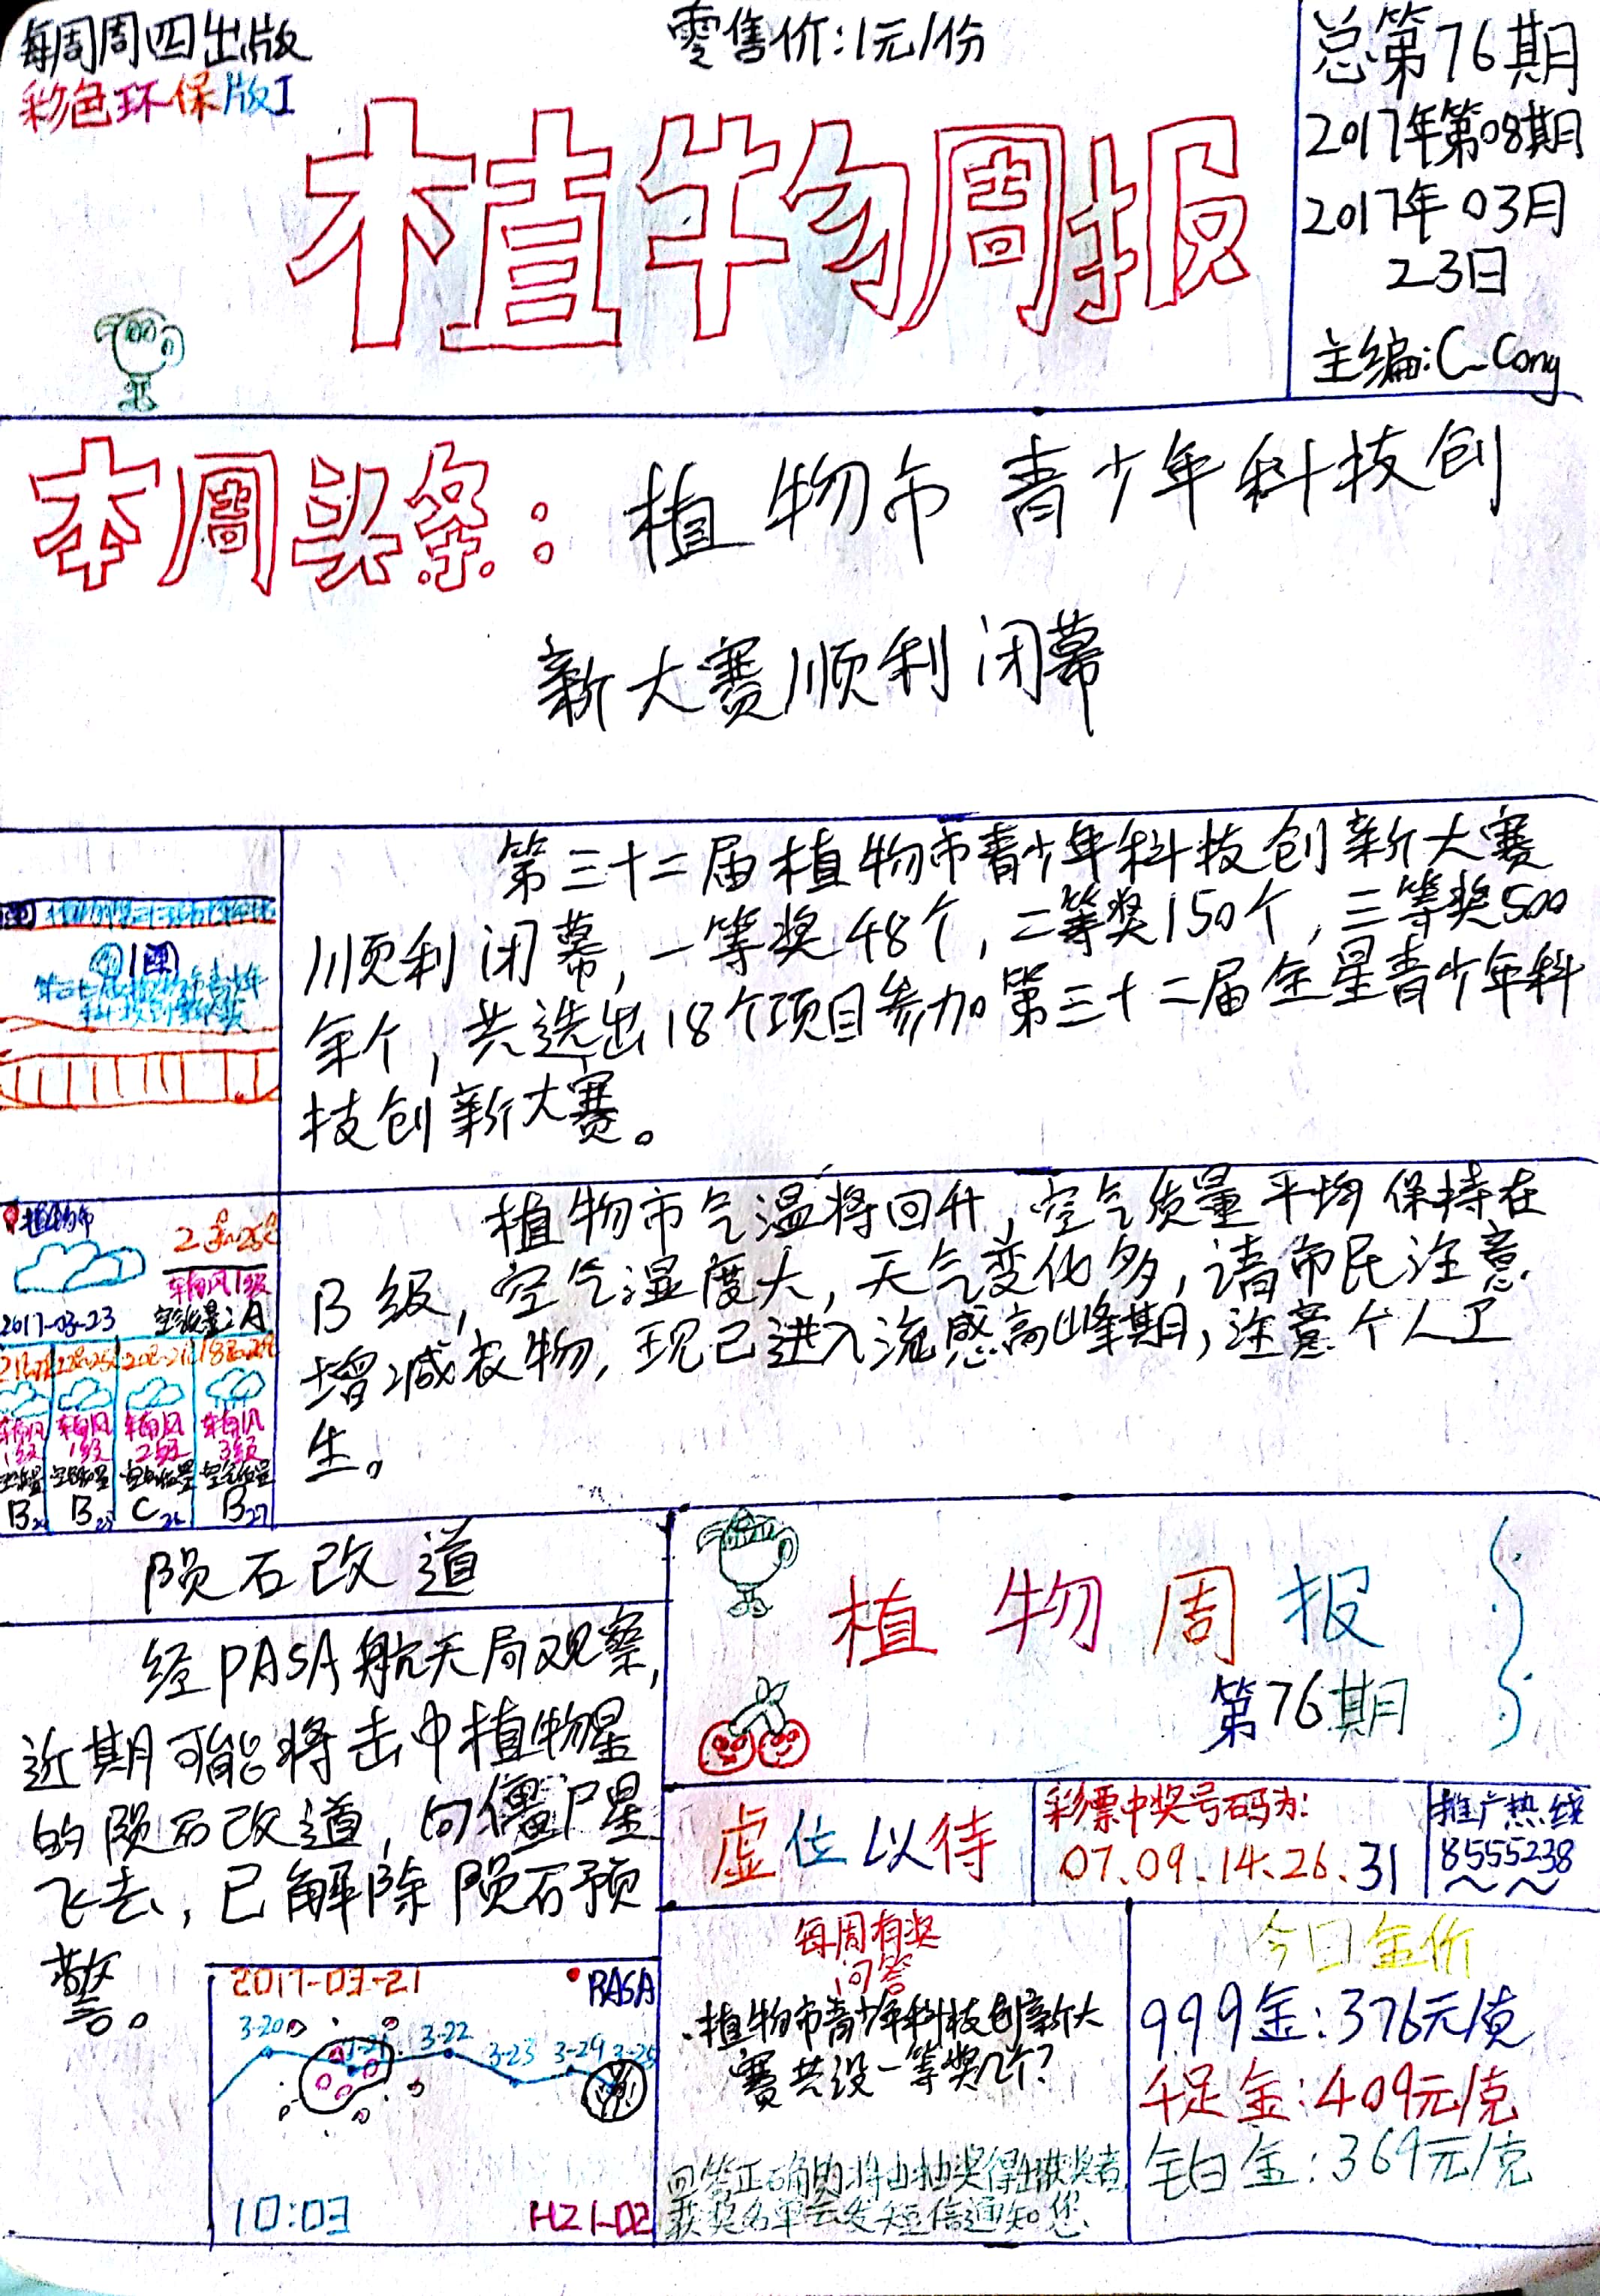 每周周四出版
彩色环保版I
零售价:1元/份
植物周报
总第76期
2017年第08期
2017年03月
23日
主编:C_Cong
本周头条:植物市青少年科技创
新大赛顺利闭幕
第三十二届植物市青少年科技创新大赛
顺利闭幕,一等奖48个,二等奖150个,三等奖500
余个,共选出18个项目参加第三十二届全星青少年科
技创新大赛。
植物市
东南风1级
2017-03-23
植物市气温将回升,空气质量平均保持在
B级,空气湿度大,天气变化多,请市民注意
增减衣物,现已进入流感高峰期,注意个人卫
生。
东南风 东南风 东南风 东南风
1级 1级 2级 3级
B B C B27
陨石改道
经PASA航天局观察,
近期可能将击中植物星
的陨石改道,向僵尸星
飞去,已解除陨石预
警。
2017-03-21
PASA
3-20 3-21 3-22 3-23 3-24 3-25
10:03
HZ1-02
植物周报
第76期
虚位以待
彩票中奖号码为:
07.09.14.26.31
推广热线
8555238
每周有奖
问答
植物市青少年科技创新大
赛共设一等奖几个?
回答正确的将由抽奖得出获奖者
获奖名单会发短信通知您
今日金价
999金:376元/克
千足金:409元/克
铂金:369元/克